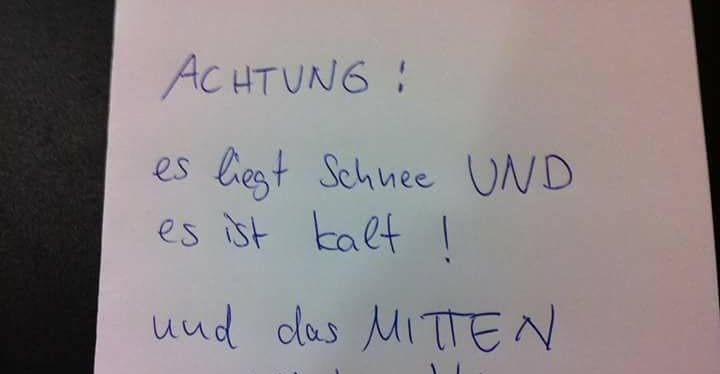 ACHTUNG :
es liegt Schnee UND
es ist kalt !
und das MITTEN